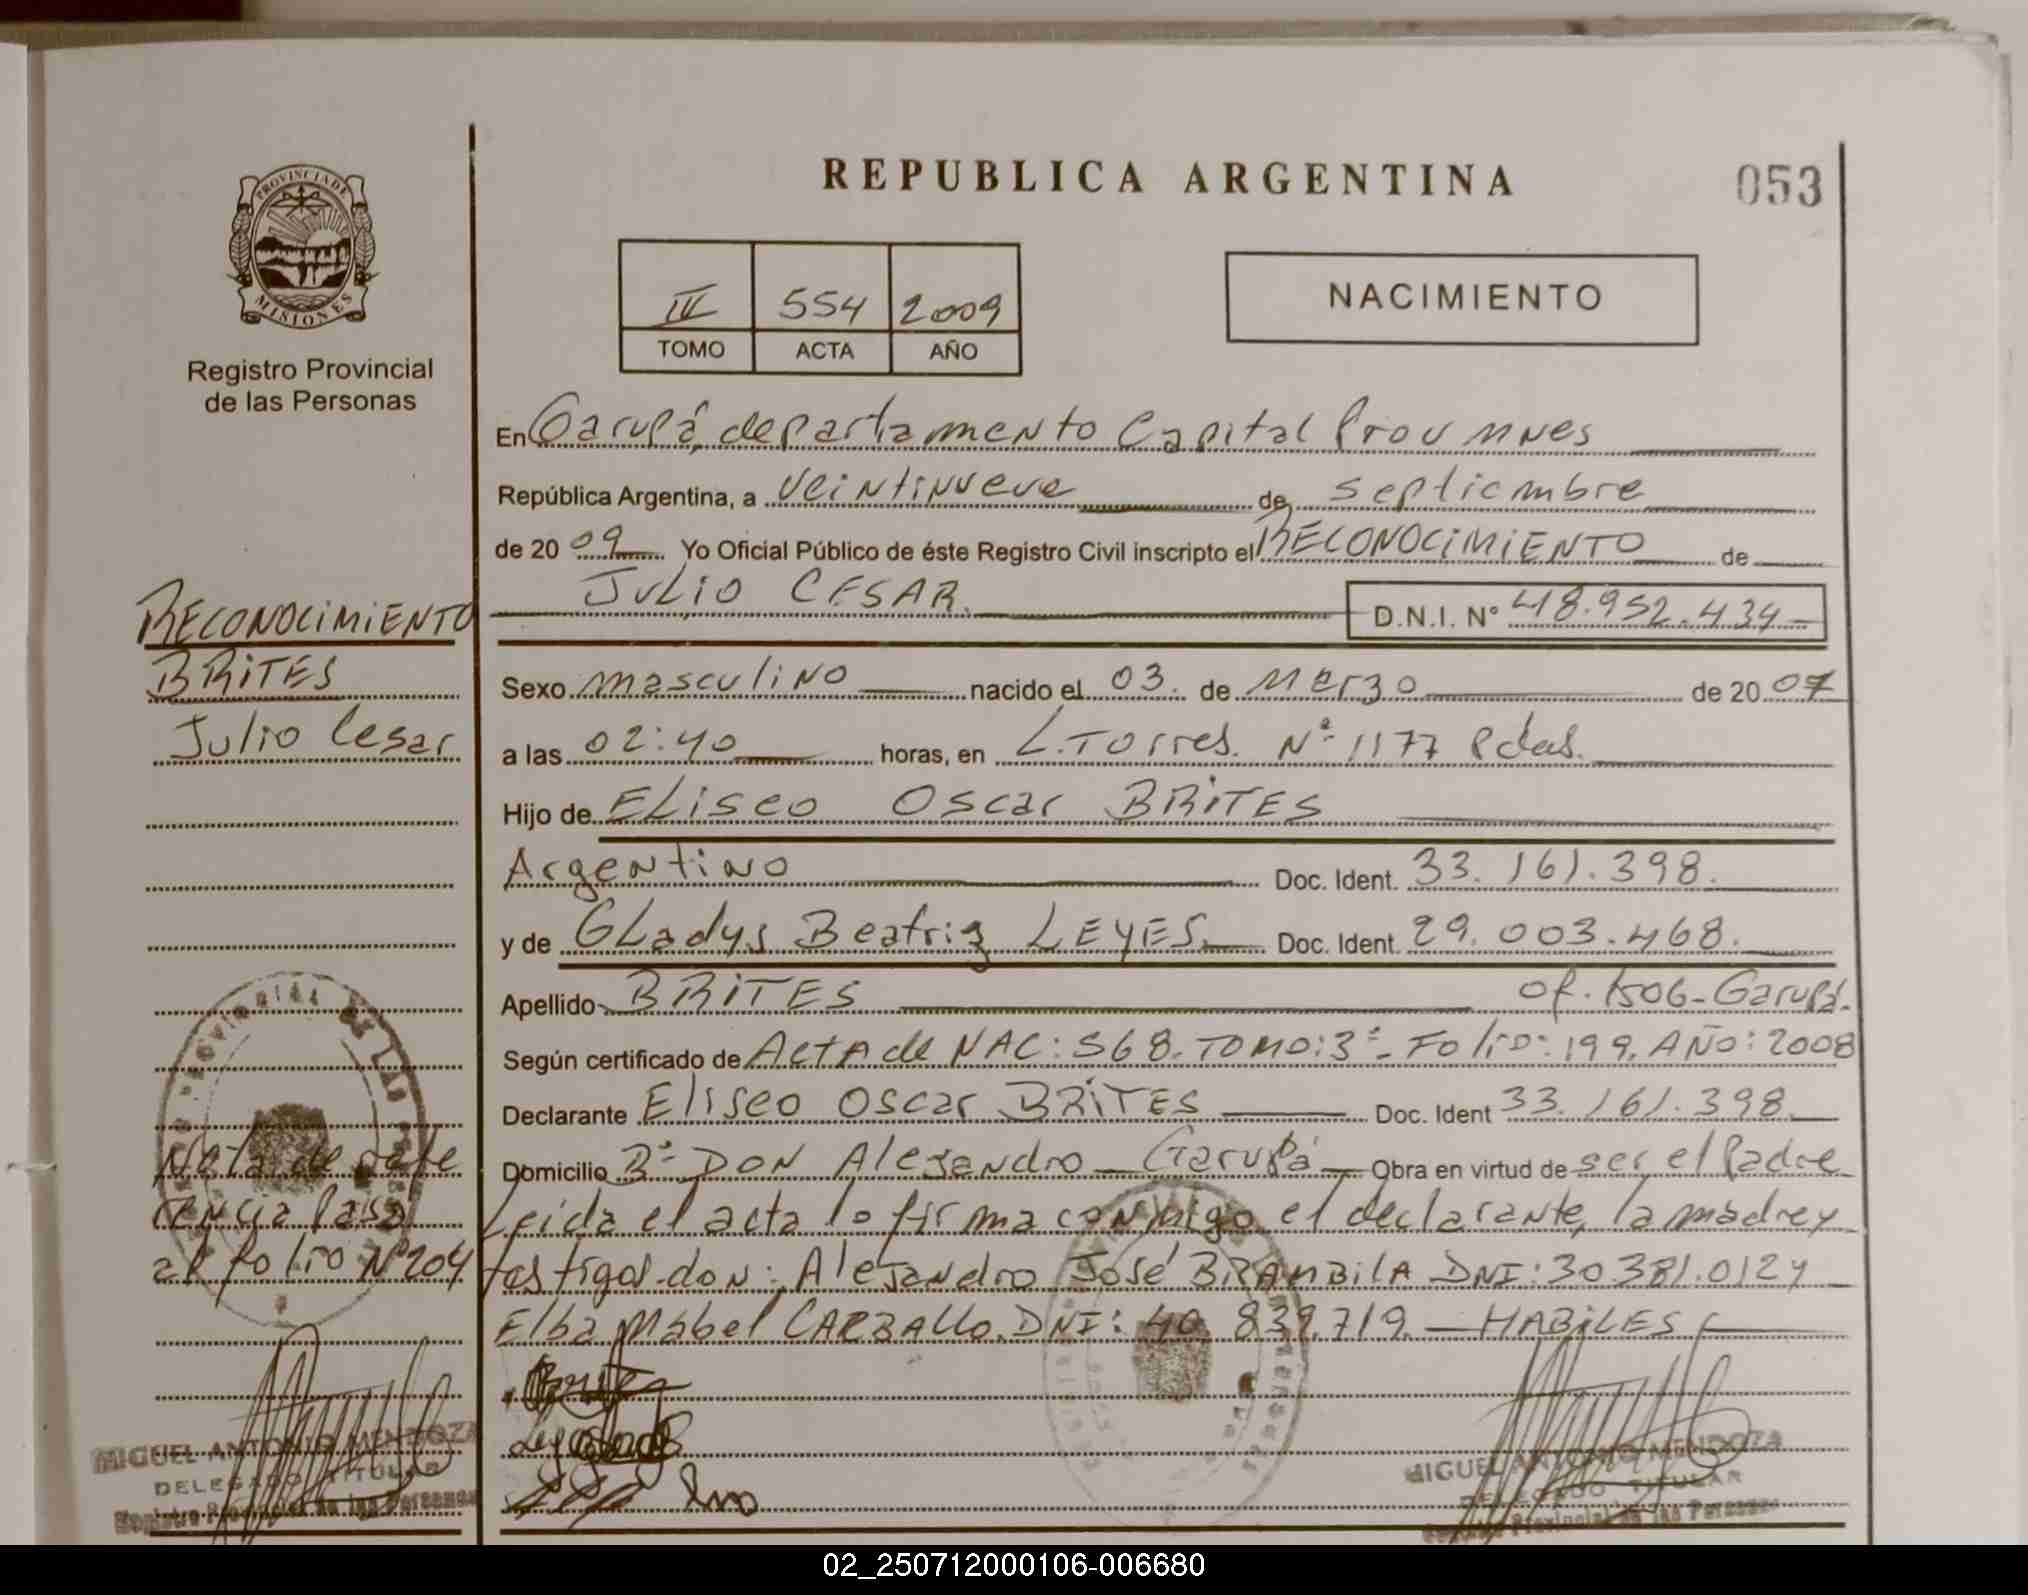 REPUBLICA ARGENTINA
053
PROVINCIA DE
MISIONES
Registro Provincial
de las Personas
IV 554 2009
TOMO ACTA AÑO
NACIMIENTO
En Garupá, departamento Capital Prov Mnes
República Argentina, a veintinueve de septiembre
de 20 09 Yo Oficial Público de éste Registro Civil inscripto el RECONOCIMIENTO de
JULIO CESAR. D.N.I. N° 48.952.434
RECONOCIMIENTO
BRITES
Julio Cesar
Sexo masculino nacido el 03. de Marzo de 20 07
a las 02:40 horas, en L. Torres. N° 1177 Pdas.
Hijo de ELiseo Oscar BRITES
Argentino Doc. Ident. 33.161.398.
y de GLadys Beatriz LEYES. Doc. Ident. 29.003.468.
Apellido BRITES of. 1506-Garupá.
Según certificado de Acta de NAC: 568. TOMO: 3°- Folio: 199. AÑO: 2008
Declarante Eliseo Oscar BRITES Doc. Ident 33.161.398
Domicilio B° DON Alejandro - Garupá Obra en virtud de ser el Padre
Leida el acta lo firma conmigo el declarante, la madre y
testigos don: Alejandro José BRAMBILA DNI: 30381.012 y
Elba Mabel CARBALLO. DNI: 40.839.719 - HABILES
Nota de refe
rencia Pasa
al folio N° 204
MIGUEL ANTONIO MENDOZA
DELEGADO TITULAR
Registro Provincial de las Personas
MIGUEL ANTONIO MENDOZA
DELEGADO TITULAR
Registro Provincial de las Personas
02_250712000106-006680